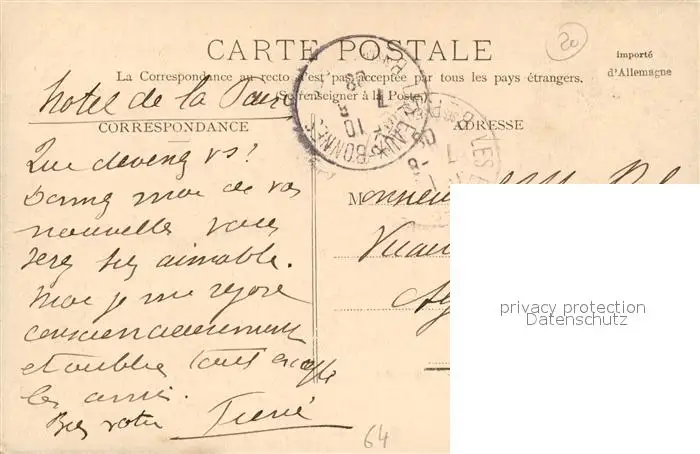 20
CARTE POSTALE
importé
d'Allemagne
La Correspondance au recto n'est pas acceptée par tous les pays étrangers.
(Se renseigner à la Poste)
hotel de la Paix
CORRESPONDANCE
ADRESSE
EAUX-BONNES
Que devenez vs?
Donnez moi de vos
nouvelles vous
serez très aimable.
Moi je me repose
consciencieusement
et oublie tout excepté
les amis.
Bien votre
Monsieur
privacy protection
Datenschutz
64